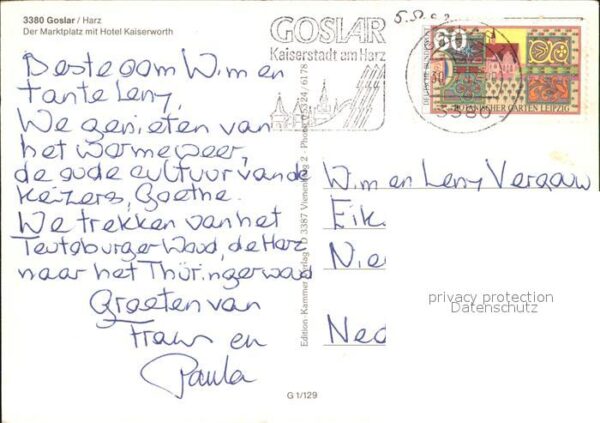 3380 Goslar / Harz
Der Marktplatz mit Hotel Kaiserworth
GOSLAR
Kaiserstadt am Harz
60
DEUTSCHE BUNDESPOST
BOTANISCHER GARTEN LEIPZIG
3380
Beste oom Wim en
tante Leny,
We genieten van
het warme weer,
de oude cultuur van de
Keizers, Goethe.
We trekken van het
Teutoburger Woud, de Harz
naar het Thüringerwoud
Groeten van
Frans en
Paula
Edition - Kammer Verlag · D 3387 Vienenburg 2 · Phone 05324/6178
Wim en Leny Vergouw
Eik
Nie
Ned
privacy protection
Datenschutz
G 1/129